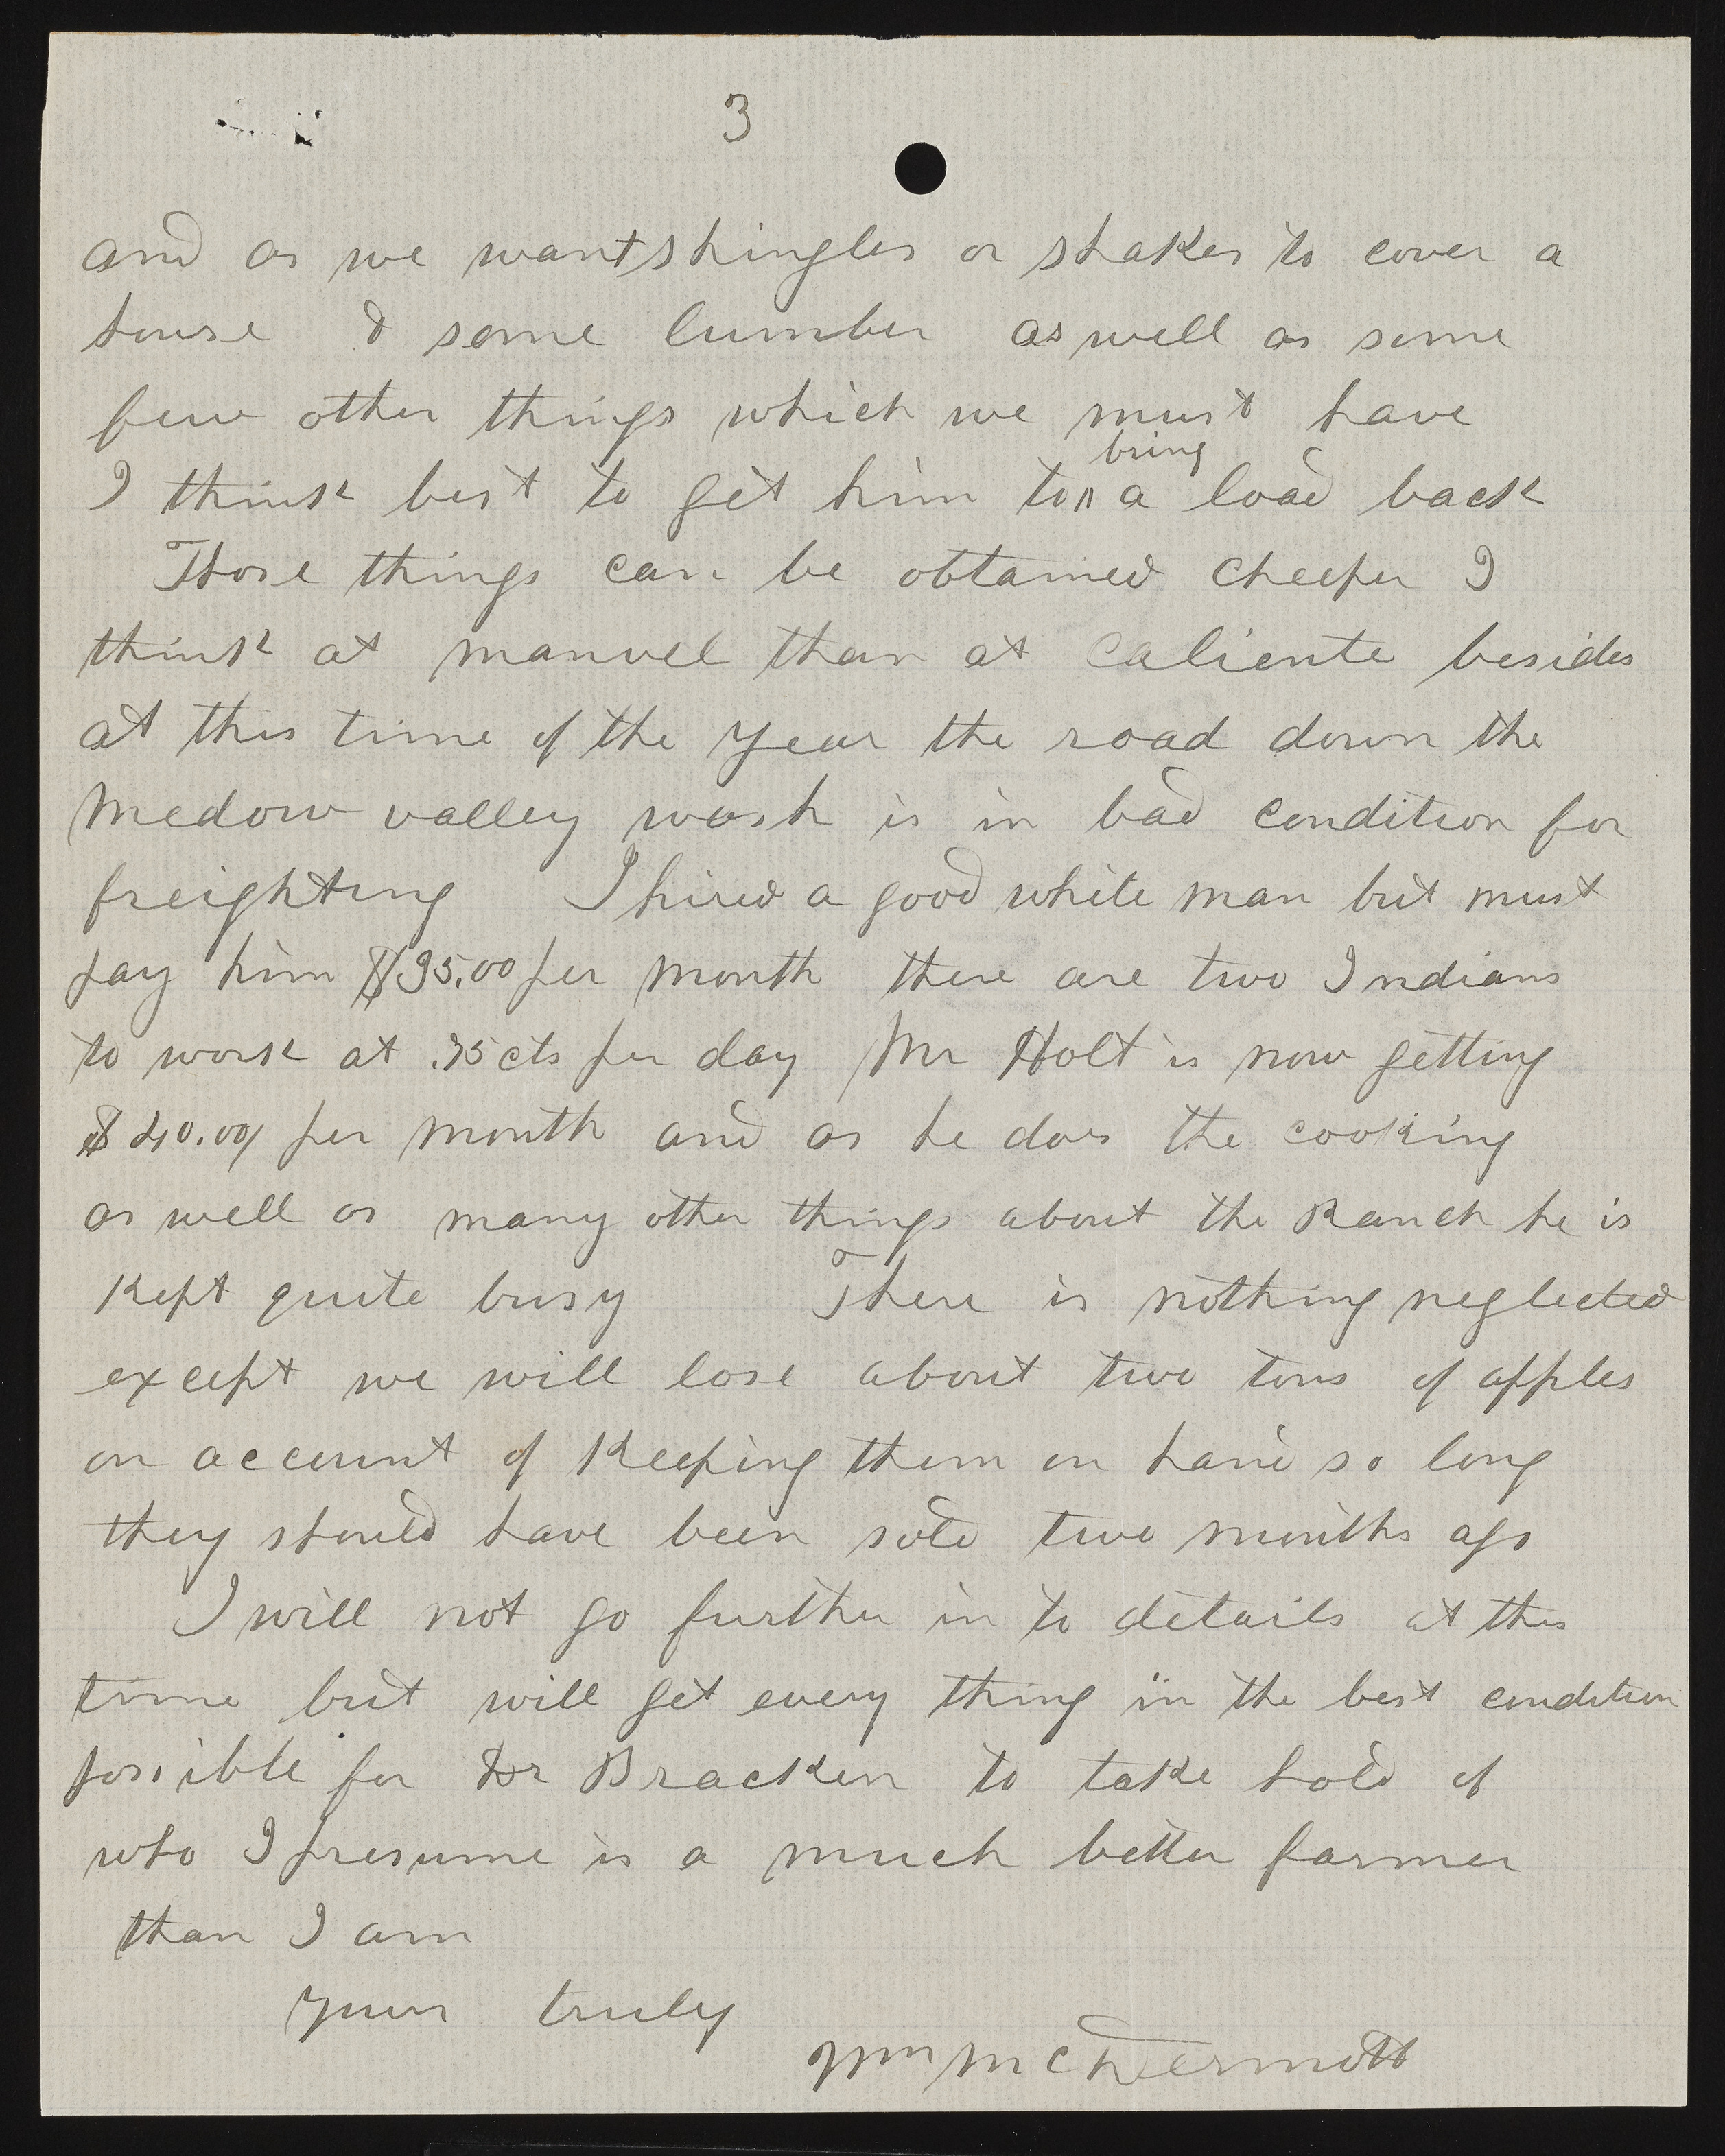 3
and as we want shingles or shakes to cover a
house & some lumber as well as some
few other things which we must have
bring
I think best to get him to a load back
Those things can be obtained cheeper I
think at manvel than at Caliente besides
at this time of the year the road down the
Medow valley wash is in bad condition for
freighting I hired a good white man but must
pay him $35.00 per month there are two Indians
to work at .75 cts per day Mr Holt is now getting
$40.00 per month and as he does the cooking
as well as many other things about the Ranch he is
Kept quite busy There is nothing neglected
except we will lose about two tons of apples
on account of Keeping them on hand so long
they should have been sold two months ago
I will not go further in to details at this
time but will get every thing in the best condition
possible for Dr Bracken to take hold of
who I presume is a much better farmer
than I am
Yours truly
Wm McDermott